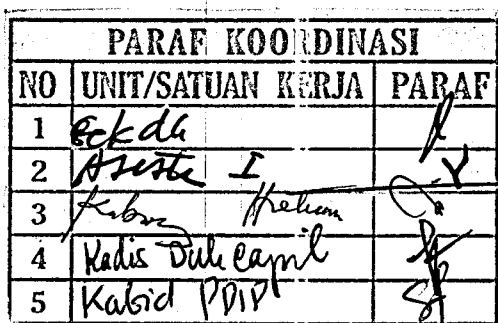 PARAF KOORDINASI
NO UNIT/SATUAN KERJA PARAF
1 Sekda
2 Asisten I
3 Kabag Hukum
4 Kadis Dukcapil
5 Kabid PDIP